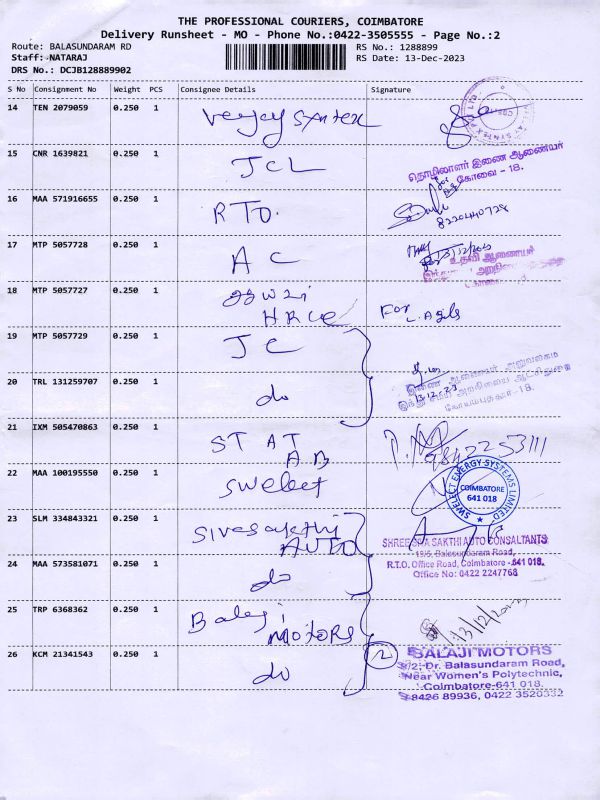 THE PROFESSIONAL COURIERS, COIMBATORE
Delivery Runsheet - MO - Phone No.:0422-3505555 - Page No.:2
Route: BALASUNDARAM RD
RS No.: 1288899
Staff: NATARAJ
RS Date: 13-Dec-2023
DRS No.: DCJB128889902
S No Consignment No Weight PCS Consignee Details Signature
14 TEN 2079059 0.250 1
15 CNR 1639821 0.250 1 JCL
தொழிலாளர் இணை ஆணையர்
கோவை - 18.
16 MAA 571916655 0.250 1 RTO.
8220440728
17 MTP 5057728 0.250 1 AC
13/12/2023
உதவி ஆணையர்
18 MTP 5057727 0.250 1
HRCE
For
19 MTP 5057729 0.250 1 JC
இணை ஆணையர் அலுவலகம்
13.12.23
20 TRL 131259707 0.250 1 do
21 IXM 505470863 0.250 1 STAT
A.B
9842253111
22 MAA 100195550 0.250 1 Swelect
SWELECT ENERGY SYSTEMS LIMITED
COIMBATORE
641 018
23 SLM 334843321 0.250 1 Sivasakthi
AUTO
SAKTHI AUTO CONSULTANTS
Balasundaram Road,
24 MAA 573581071 0.250 1 do
R.T.O. Office Road, Coimbatore - 641 018.
Office No: 0422 2247768
25 TRP 6368362 0.250 1 Balaji
MOTORS
13/12/2023
26 KCM 21341543 0.250 1 do
2
BALAJI MOTORS
Dr. Balasundaram Road,
Near Women's Polytechnic,
Coimbatore-641 018.
98426 89936, 0422 3520332